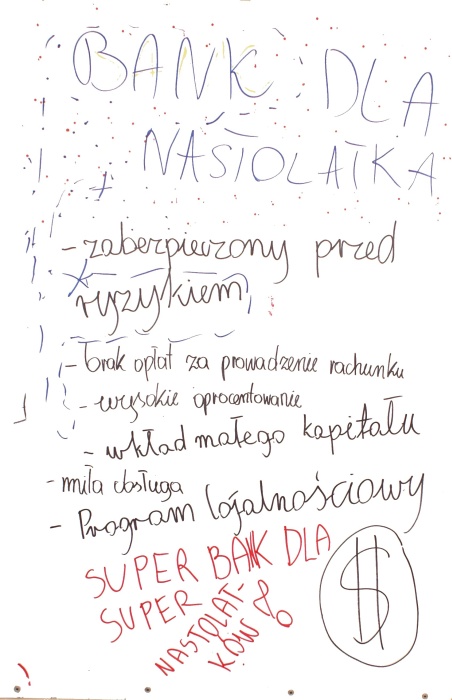 BANK DLA
NASTOLATKA
- zabezpieczony przed
ryzykiem
- brak opłat za prowadzenie rachunku
- wysokie oprocentowanie
- wkład małego kapitału
- miła obsługa
- Program lojalnościowy
SUPER BANK DLA
SUPER
NASTOLAT-
KÓW
$